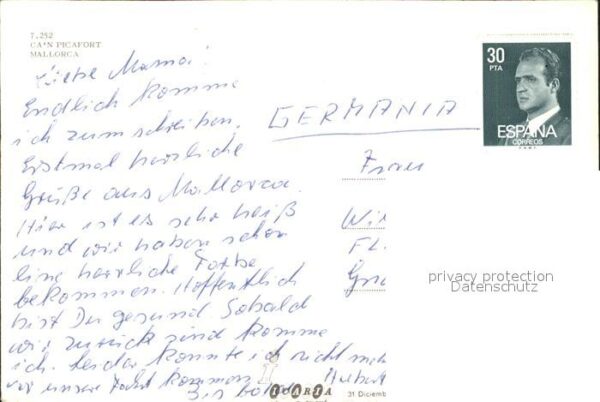 7.252
CA'N PICAFORT
MALLORCA
Liebe Mama!
Endlich komme
ich zum schreiben.
Erstmal herrliche
Grüße aus Mallorca.
Hier ist es sehr heiß
und wir haben schon
eine herrliche Farbe
bekommen. Hoffentlich
bist Du gesund. Sobald
wir zurück sind komme
ich. Leider konnte ich nicht mehr
vor unserer Fahrt kommen.
Bis bald
GERMANIA
30
PTA
ESPAÑA
CORREOS
Frau
Wi
FL.
privacy protection
Datenschutz
31 Diciemb